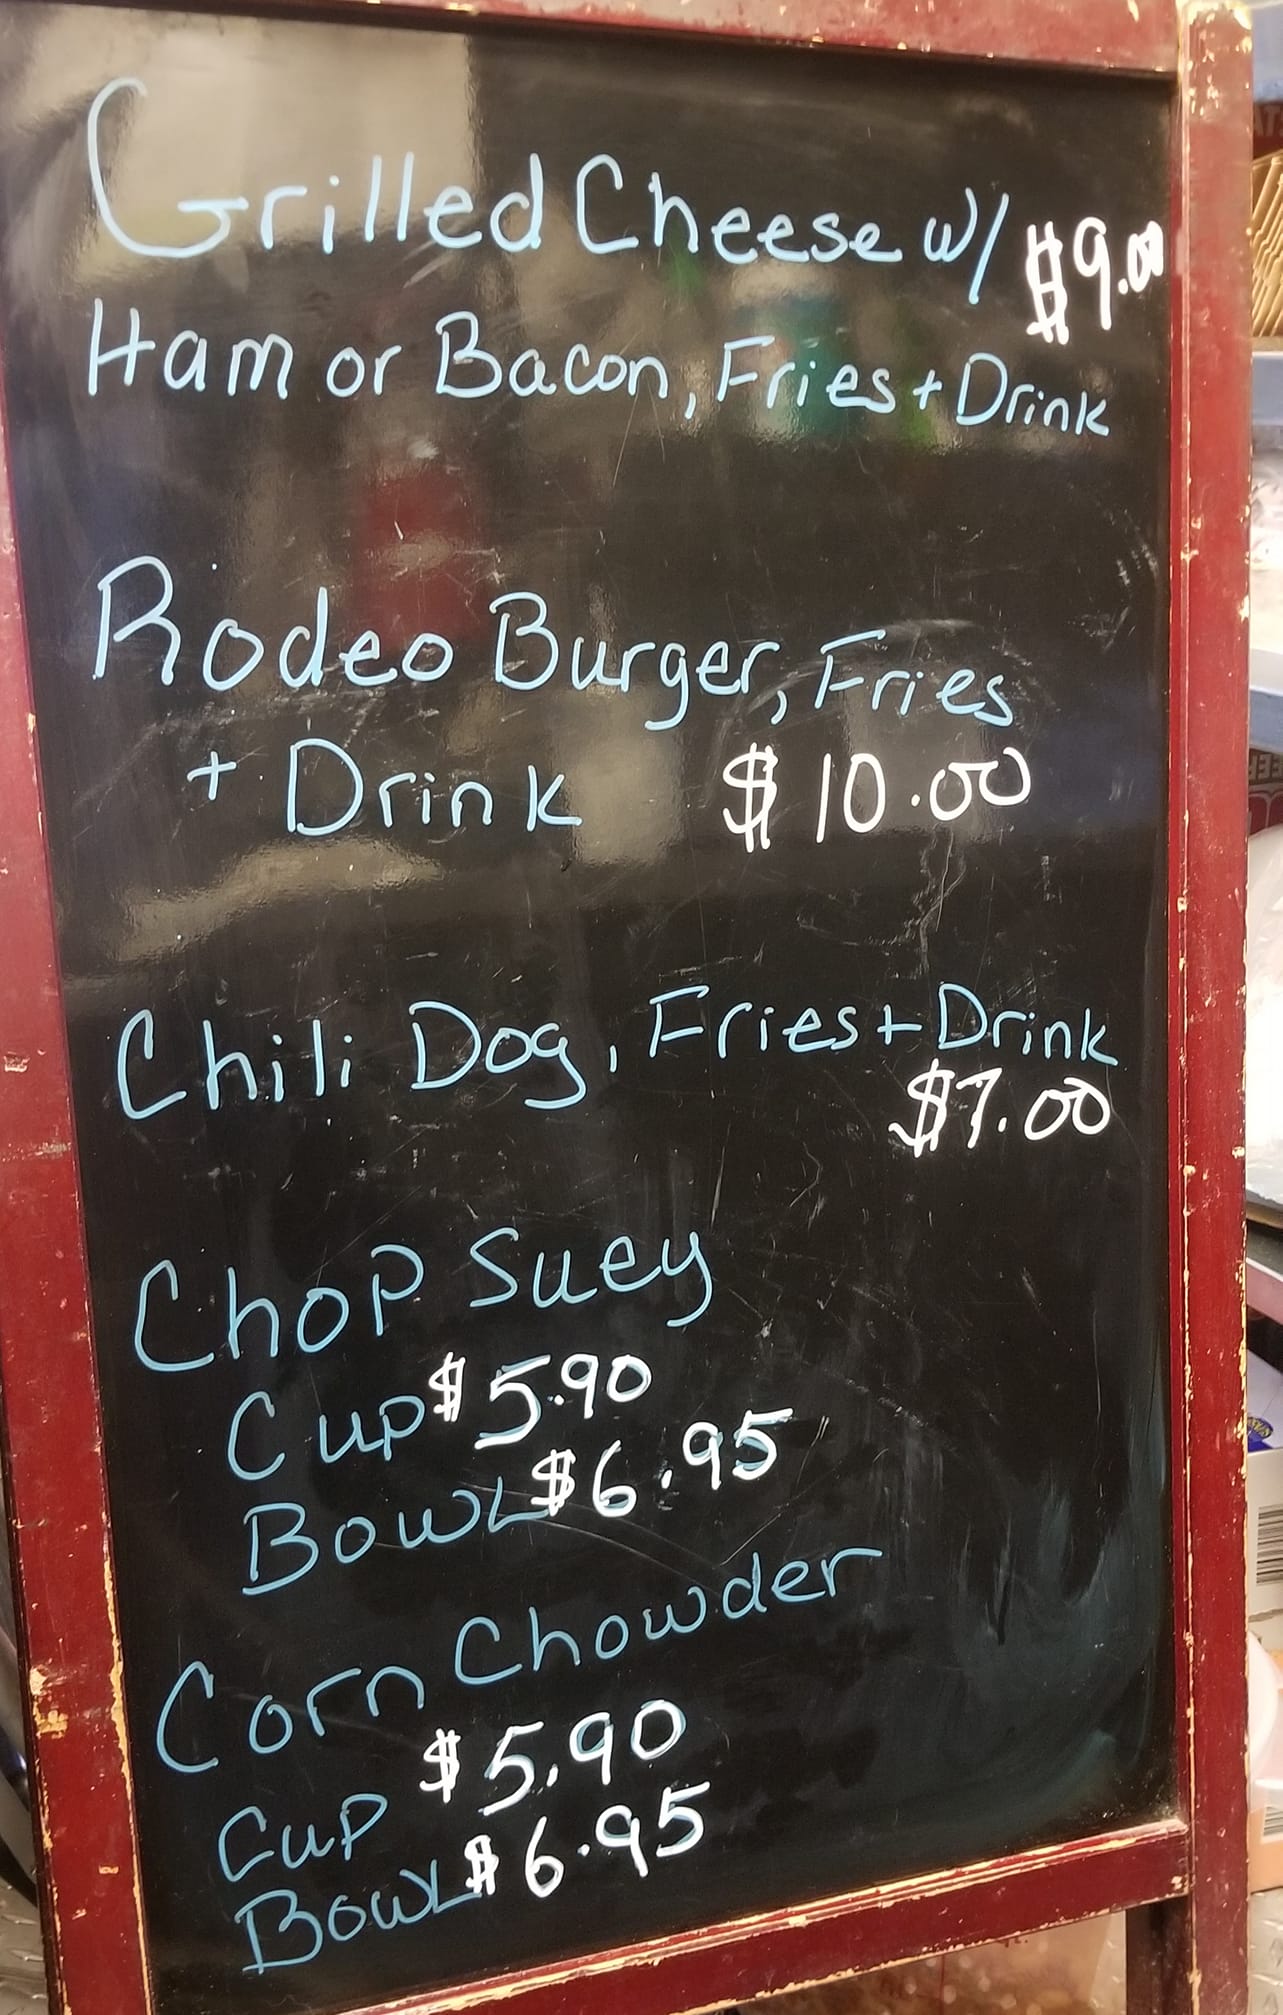 Grilled Cheese w/ $9.00
Ham or Bacon, Fries + Drink
Rodeo Burger, Fries
+ Drink $10.00
Chili Dog, Fries + Drink
$7.00
Chop Suey
Cup $5.90
Bowl $6.95
Corn Chowder
Cup $5.90
Bowl $6.95